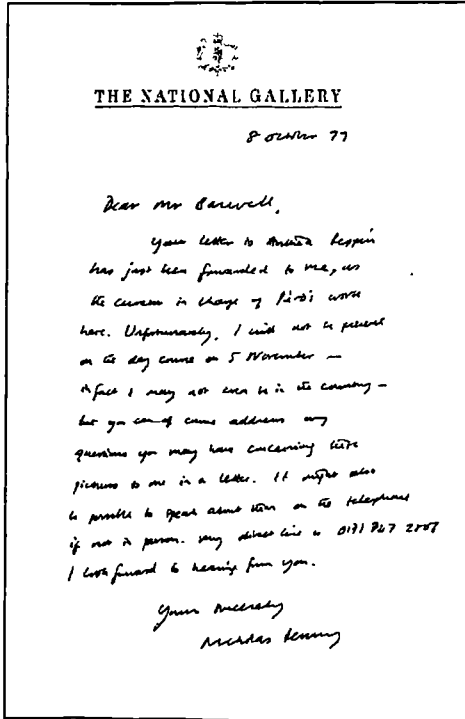 THE NATIONAL GALLERY
8 October 77
Dear Mr
Your letter to
has just been forwarded to me, as
the curator in charge of Piero's work
here. Unfortunately, I will not be present
on the day course on 5 November —
in fact I may not even be in the country —
but you can of course address any
questions you may have concerning these
pictures to me in a letter. It might also
be possible to speak about them on the telephone
if not in person. My direct line is 0171 747
I look forward to hearing from you.
Yours sincerely
Nicholas Penny